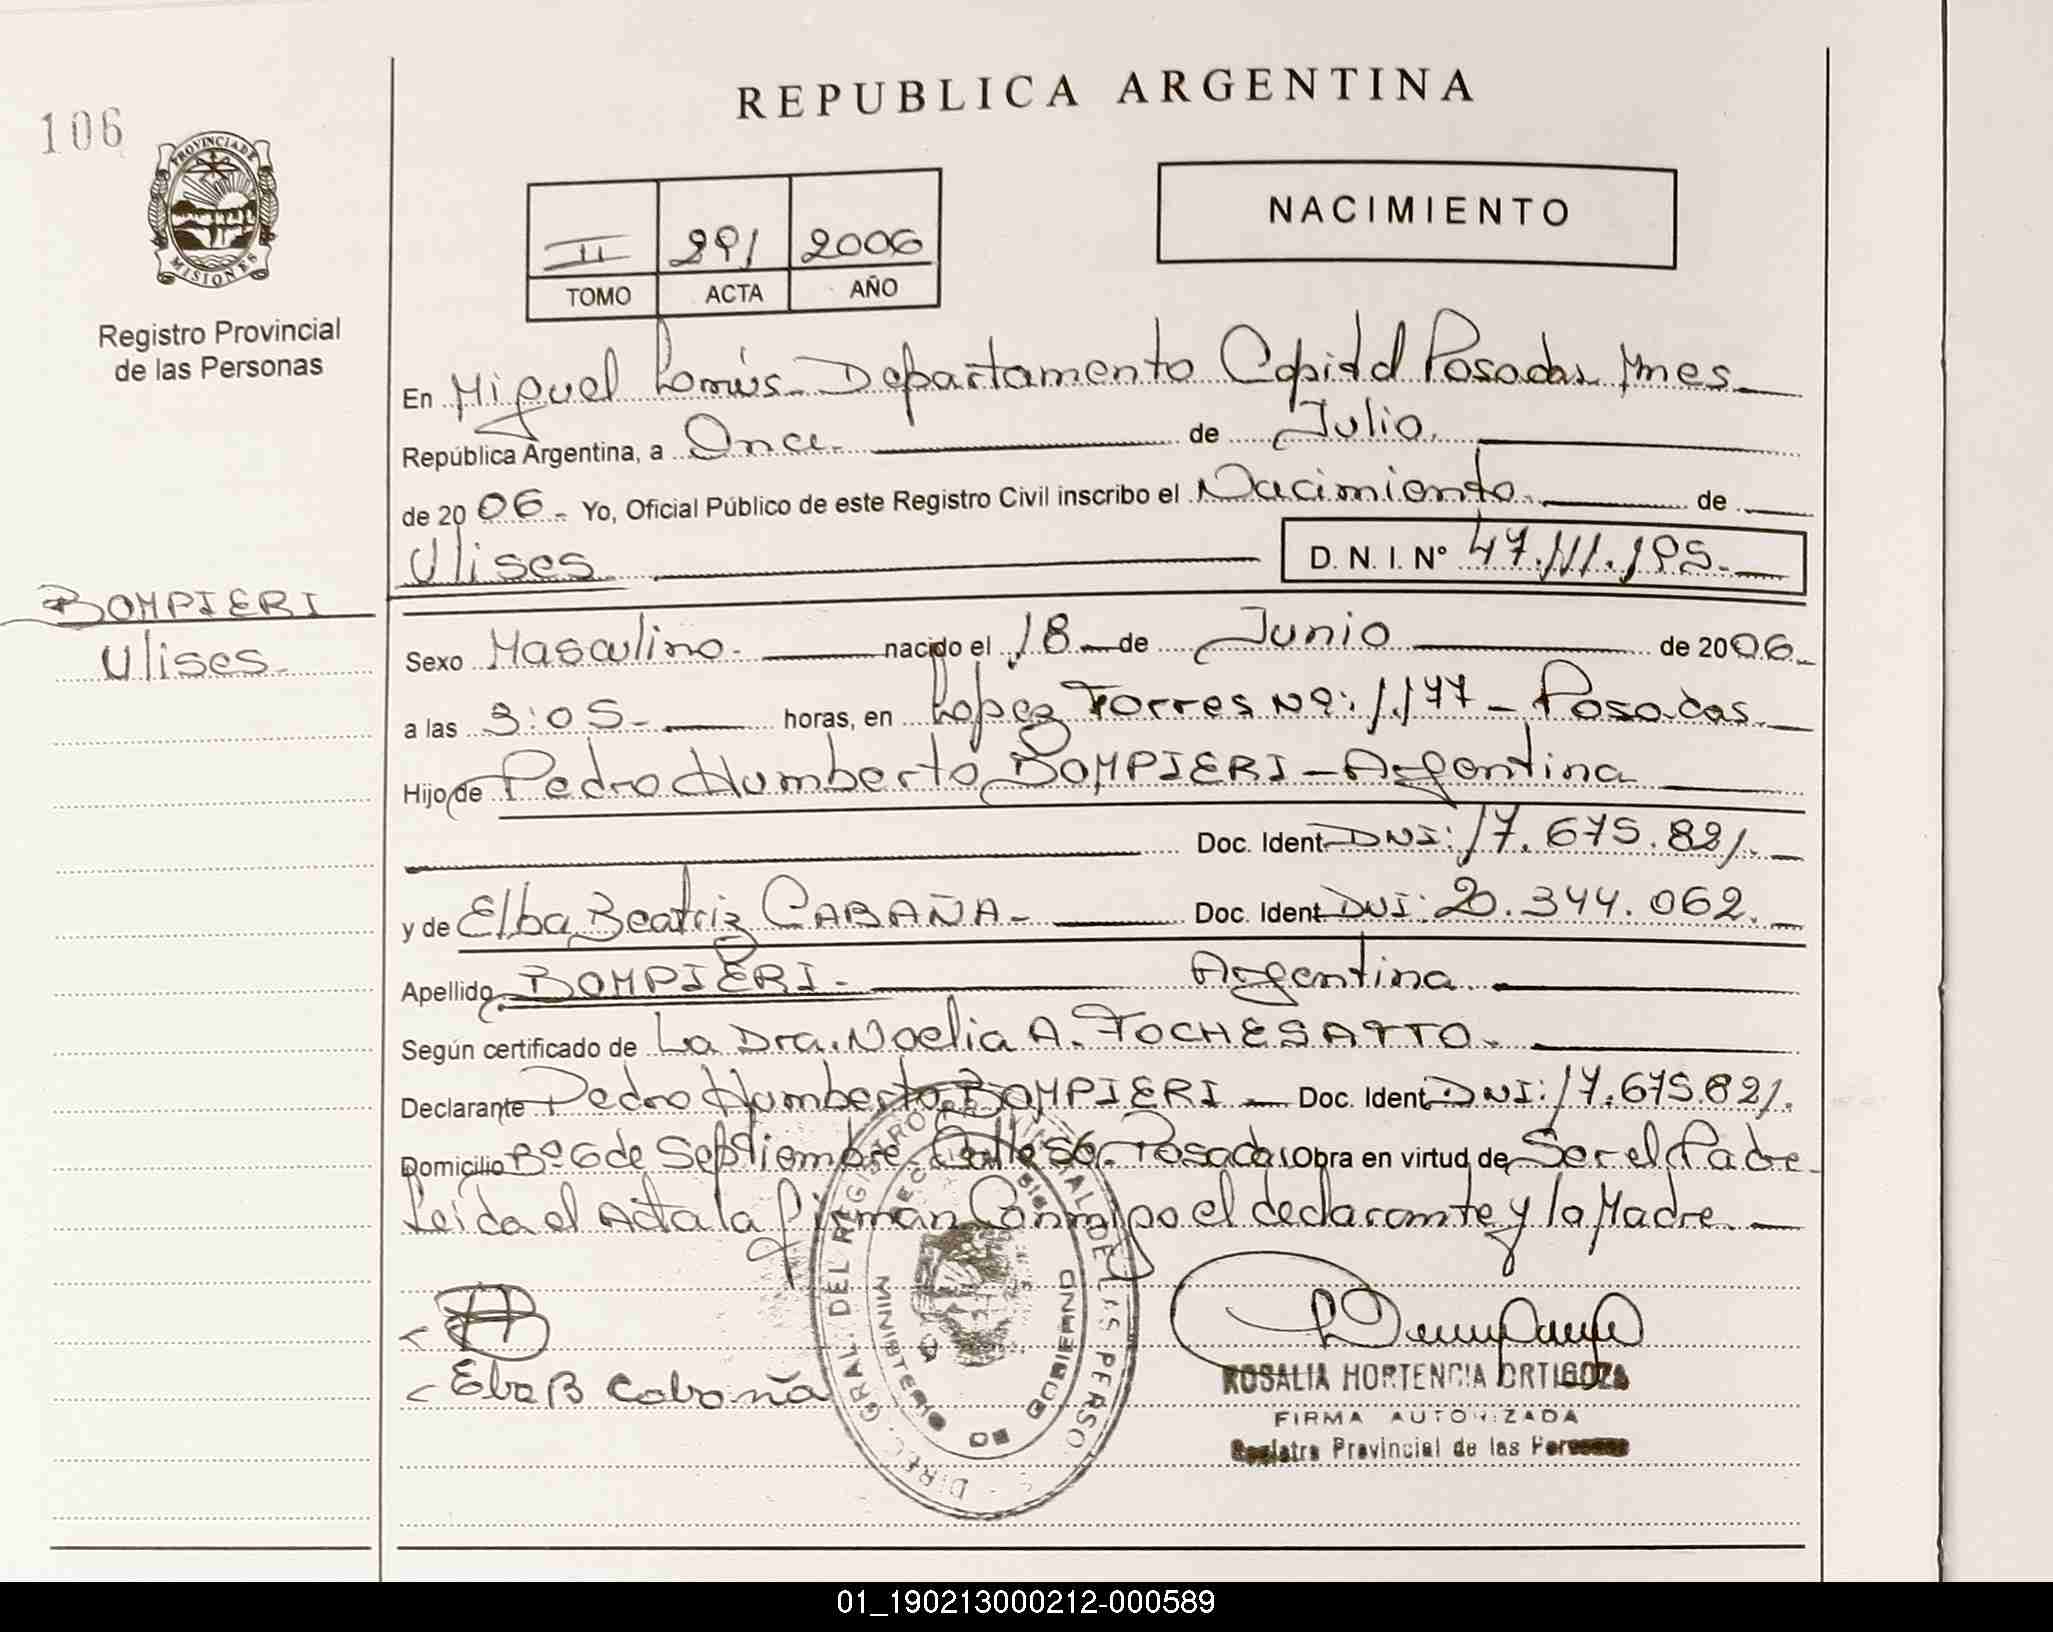 REPUBLICA ARGENTINA
106
PROVINCIA DE
MISIONES
Registro Provincial
de las Personas
NACIMIENTO
II 291 2006
TOMO ACTA AÑO
En Miguel Lanús - Departamento Capital Posadas Mnes
República Argentina, a Once de Julio
de 2006 - Yo, Oficial Público de este Registro Civil inscribo el Nacimiento de
Ulises D. N. I. Nº 47.111.195.-
BOMPIERI
Ulises
Sexo Masculino - nacido el 18 de Junio de 2006
a las 3:05 - horas, en Lopez Torres Nº: 1.177 - Posadas
Hijo de Pedro Humberto BOMPIERI - Argentina
Doc. Ident DNI: 17.675.821.-
y de Elba Beatriz CABAÑA - Doc. Ident DNI: 20.344.062.-
Apellido BOMPIERI - Argentina
Según certificado de La Dra. Noelia A. TOCHESATTO.
Declarante Pedro Humberto BOMPIERI - Doc. Ident DNI: 17.675.821.
Domicilio Bº 6 de Septiembre - Calle 56 - Posadas Obra en virtud de Ser el Padre
Leida el Acta la firman Conmigo el declarante y la Madre.
Elba B Cabaña
DIREC. GRAL. DEL REGISTRO
MINISTERIO DE GOBIERNO
ROSALIA HORTENCIA ORTIGOZA
FIRMA AUTORIZADA
Registro Provincial de las Personas
01_190213000212-000589